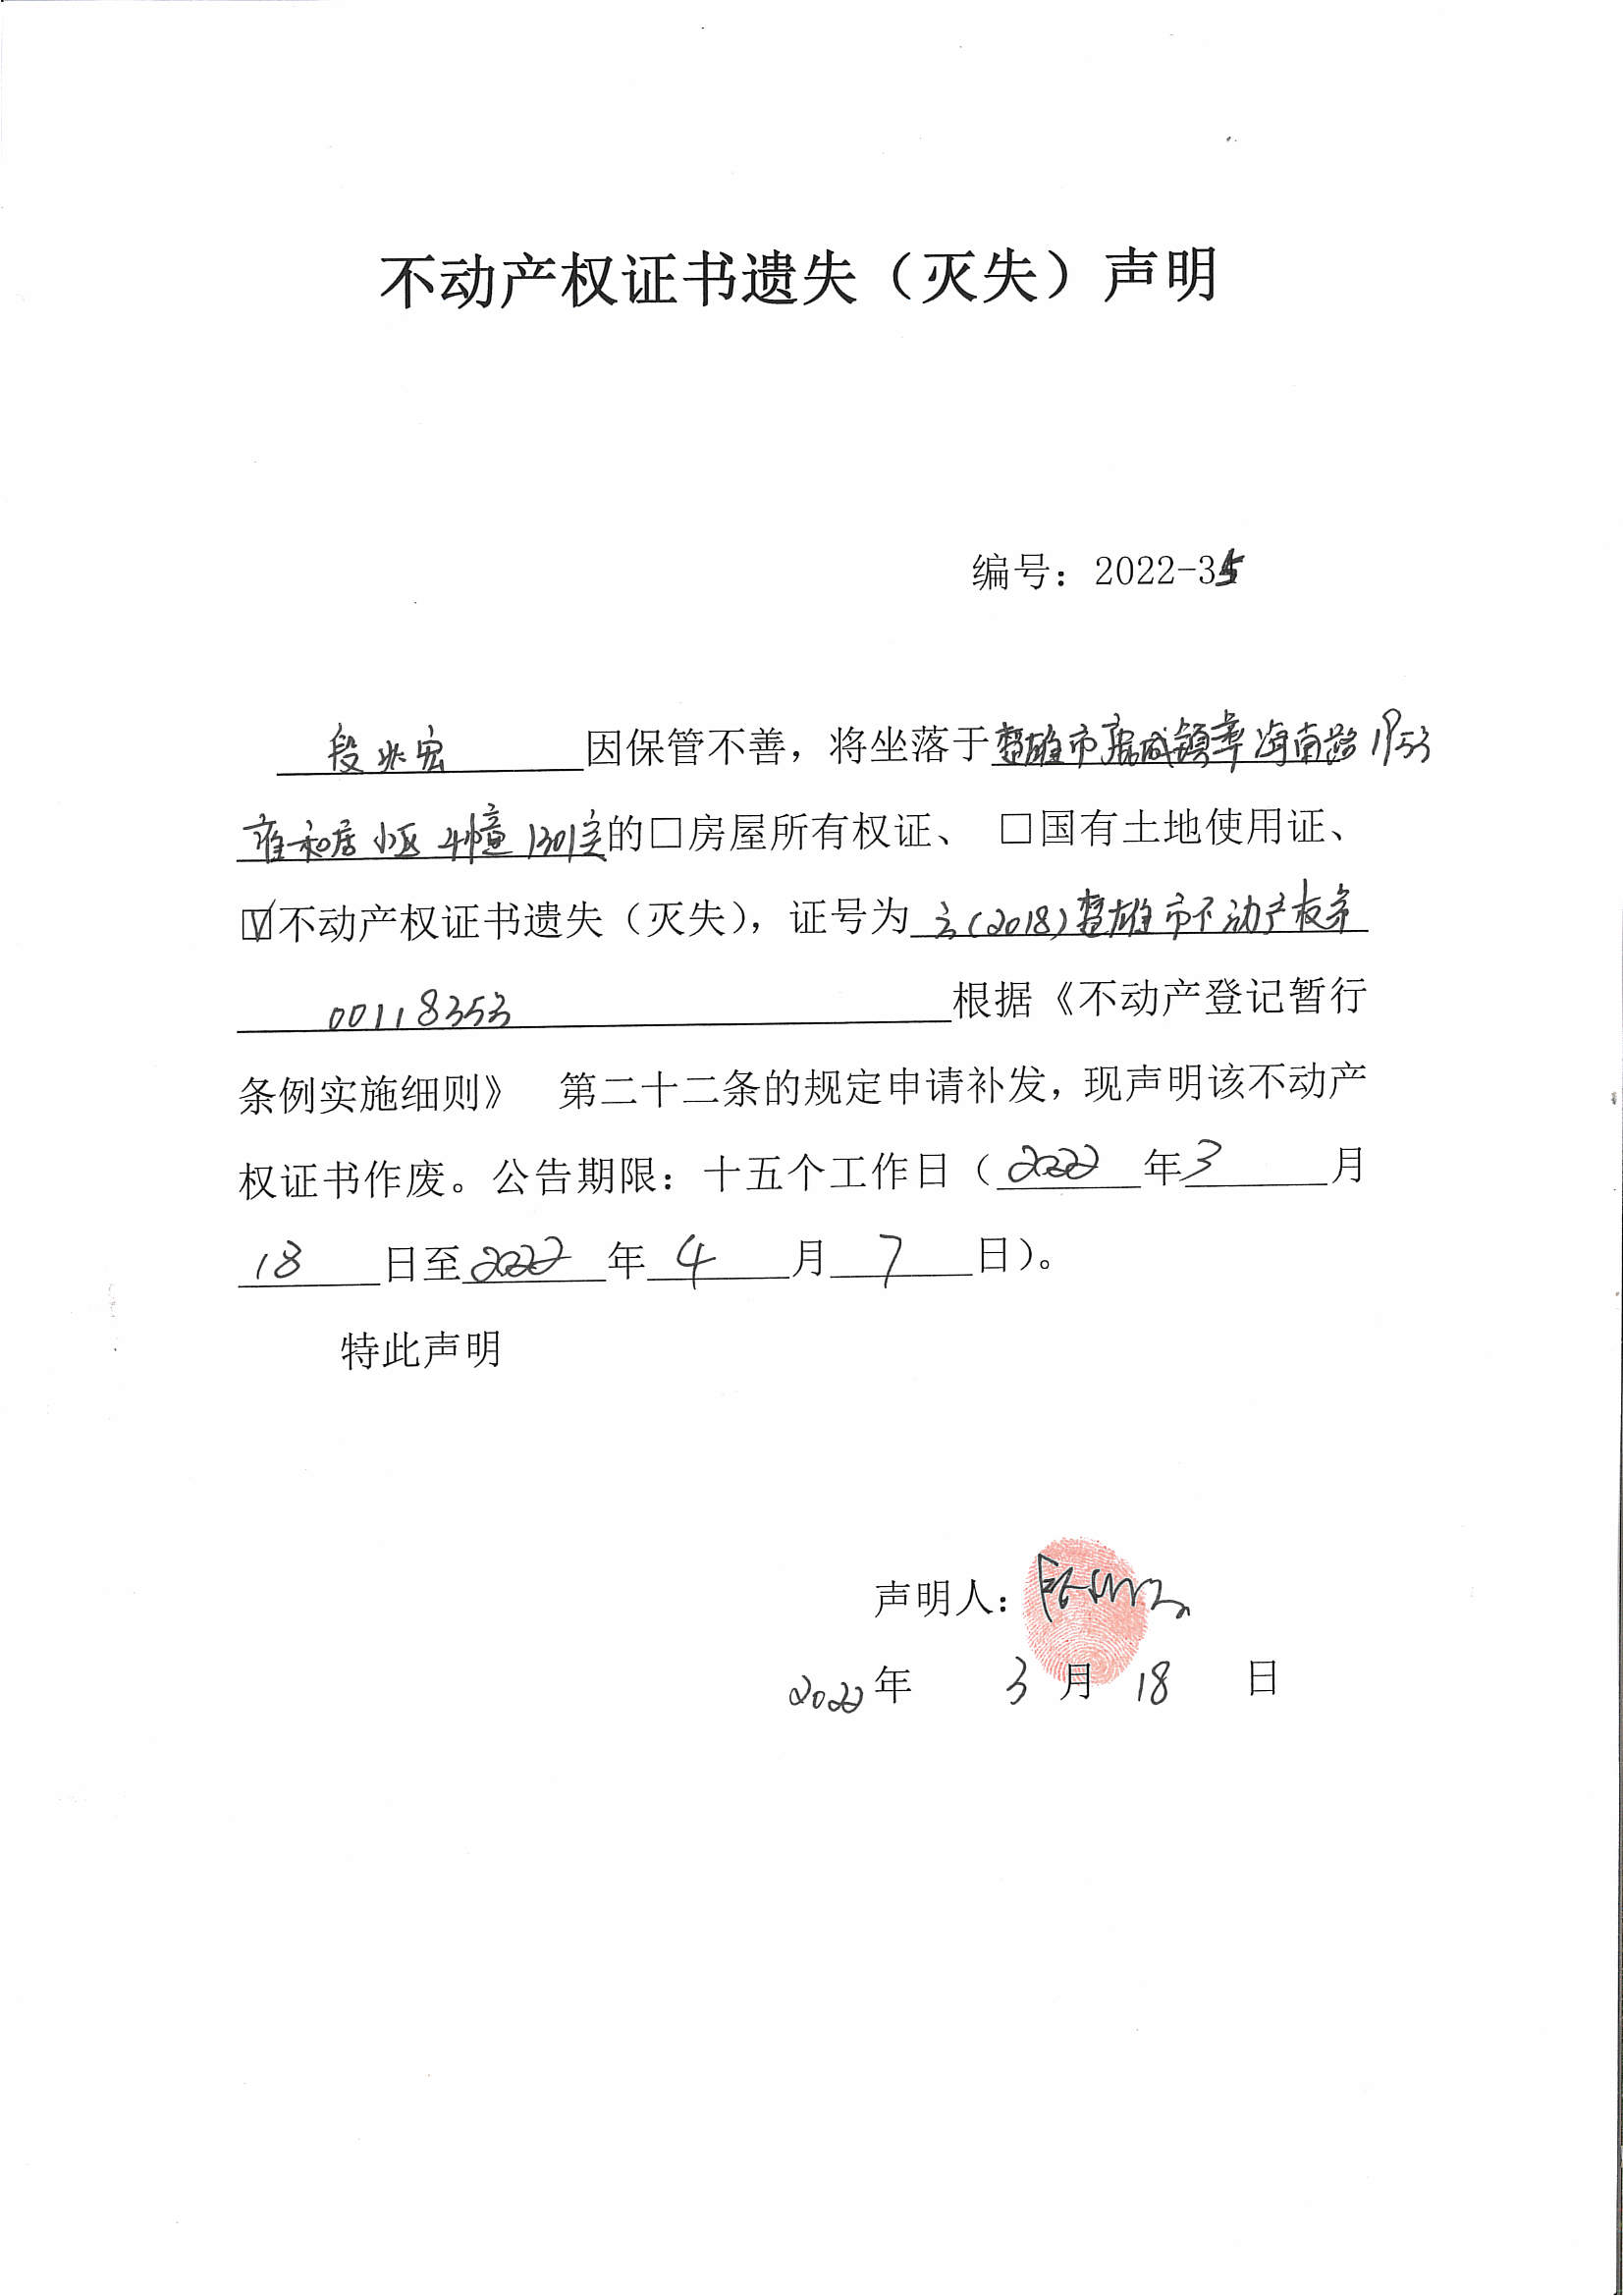 不动产权证书遗失（灭失）声明
编号：2022-35
段兆宏 因保管不善，将坐落于楚雄市鹿城镇彝海南路1953
雍和居小区4幢1301室的□房屋所有权证、 □国有土地使用证、
☑不动产权证书遗失（灭失），证号为云(2018)楚雄市不动产权第
00118353 根据《不动产登记暂行
条例实施细则》 第二十二条的规定申请补发，现声明该不动产
权证书作废。公告期限：十五个工作日（2022 年3 月
18 日至2022 年 4 月 7 日）。
特此声明
声明人：
2022年 3 月 18 日